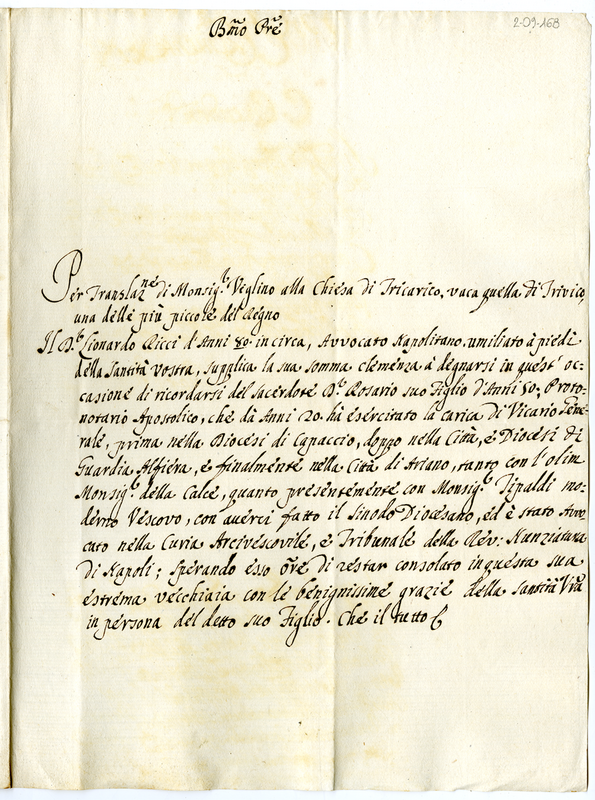 2-09-168
Bmo Pre
Per Translazne di Monsigr Veglino alla Chiesa di Tricarico, vaca quella di Trivico,
una delle più piccole del Regno
Il Dr Lionardo Ricci d'Anni 80 in circa, Avvocato Napolitano umiliato à piedi
della Santità vostra, supplica la sua somma clemenza à degnarsi in quest' oc-
casione di ricordarsi del sacerdote Dr Rosario suo Figlio d'Anni 50, Proto-
notario Apostolico, che dà Anni 20 hà esercitato la carica di Vicario Gene-
rale, prima nella Diocesi di Capaccio, doppo nella Città, e Diocesi di
Guardia Alfiera, e finalmente nella Città di Ariano, tanto con l'olim
Monsigr della Calce, quanto presentemente con Monsigr Tipaldi mo-
derno Vescovo, con averci fatto il Sinodo Diocesano, ed è stato Avvo-
cato nella Curia Arcivescovile, e Tribunale della Rev: Nunziatura
di Napoli; sperando esso ore di restar consolato in questa sua
estrema vecchiaia con le benignissime grazie della Santità Vra
in persona del detto suo Figlio. Che il tutto